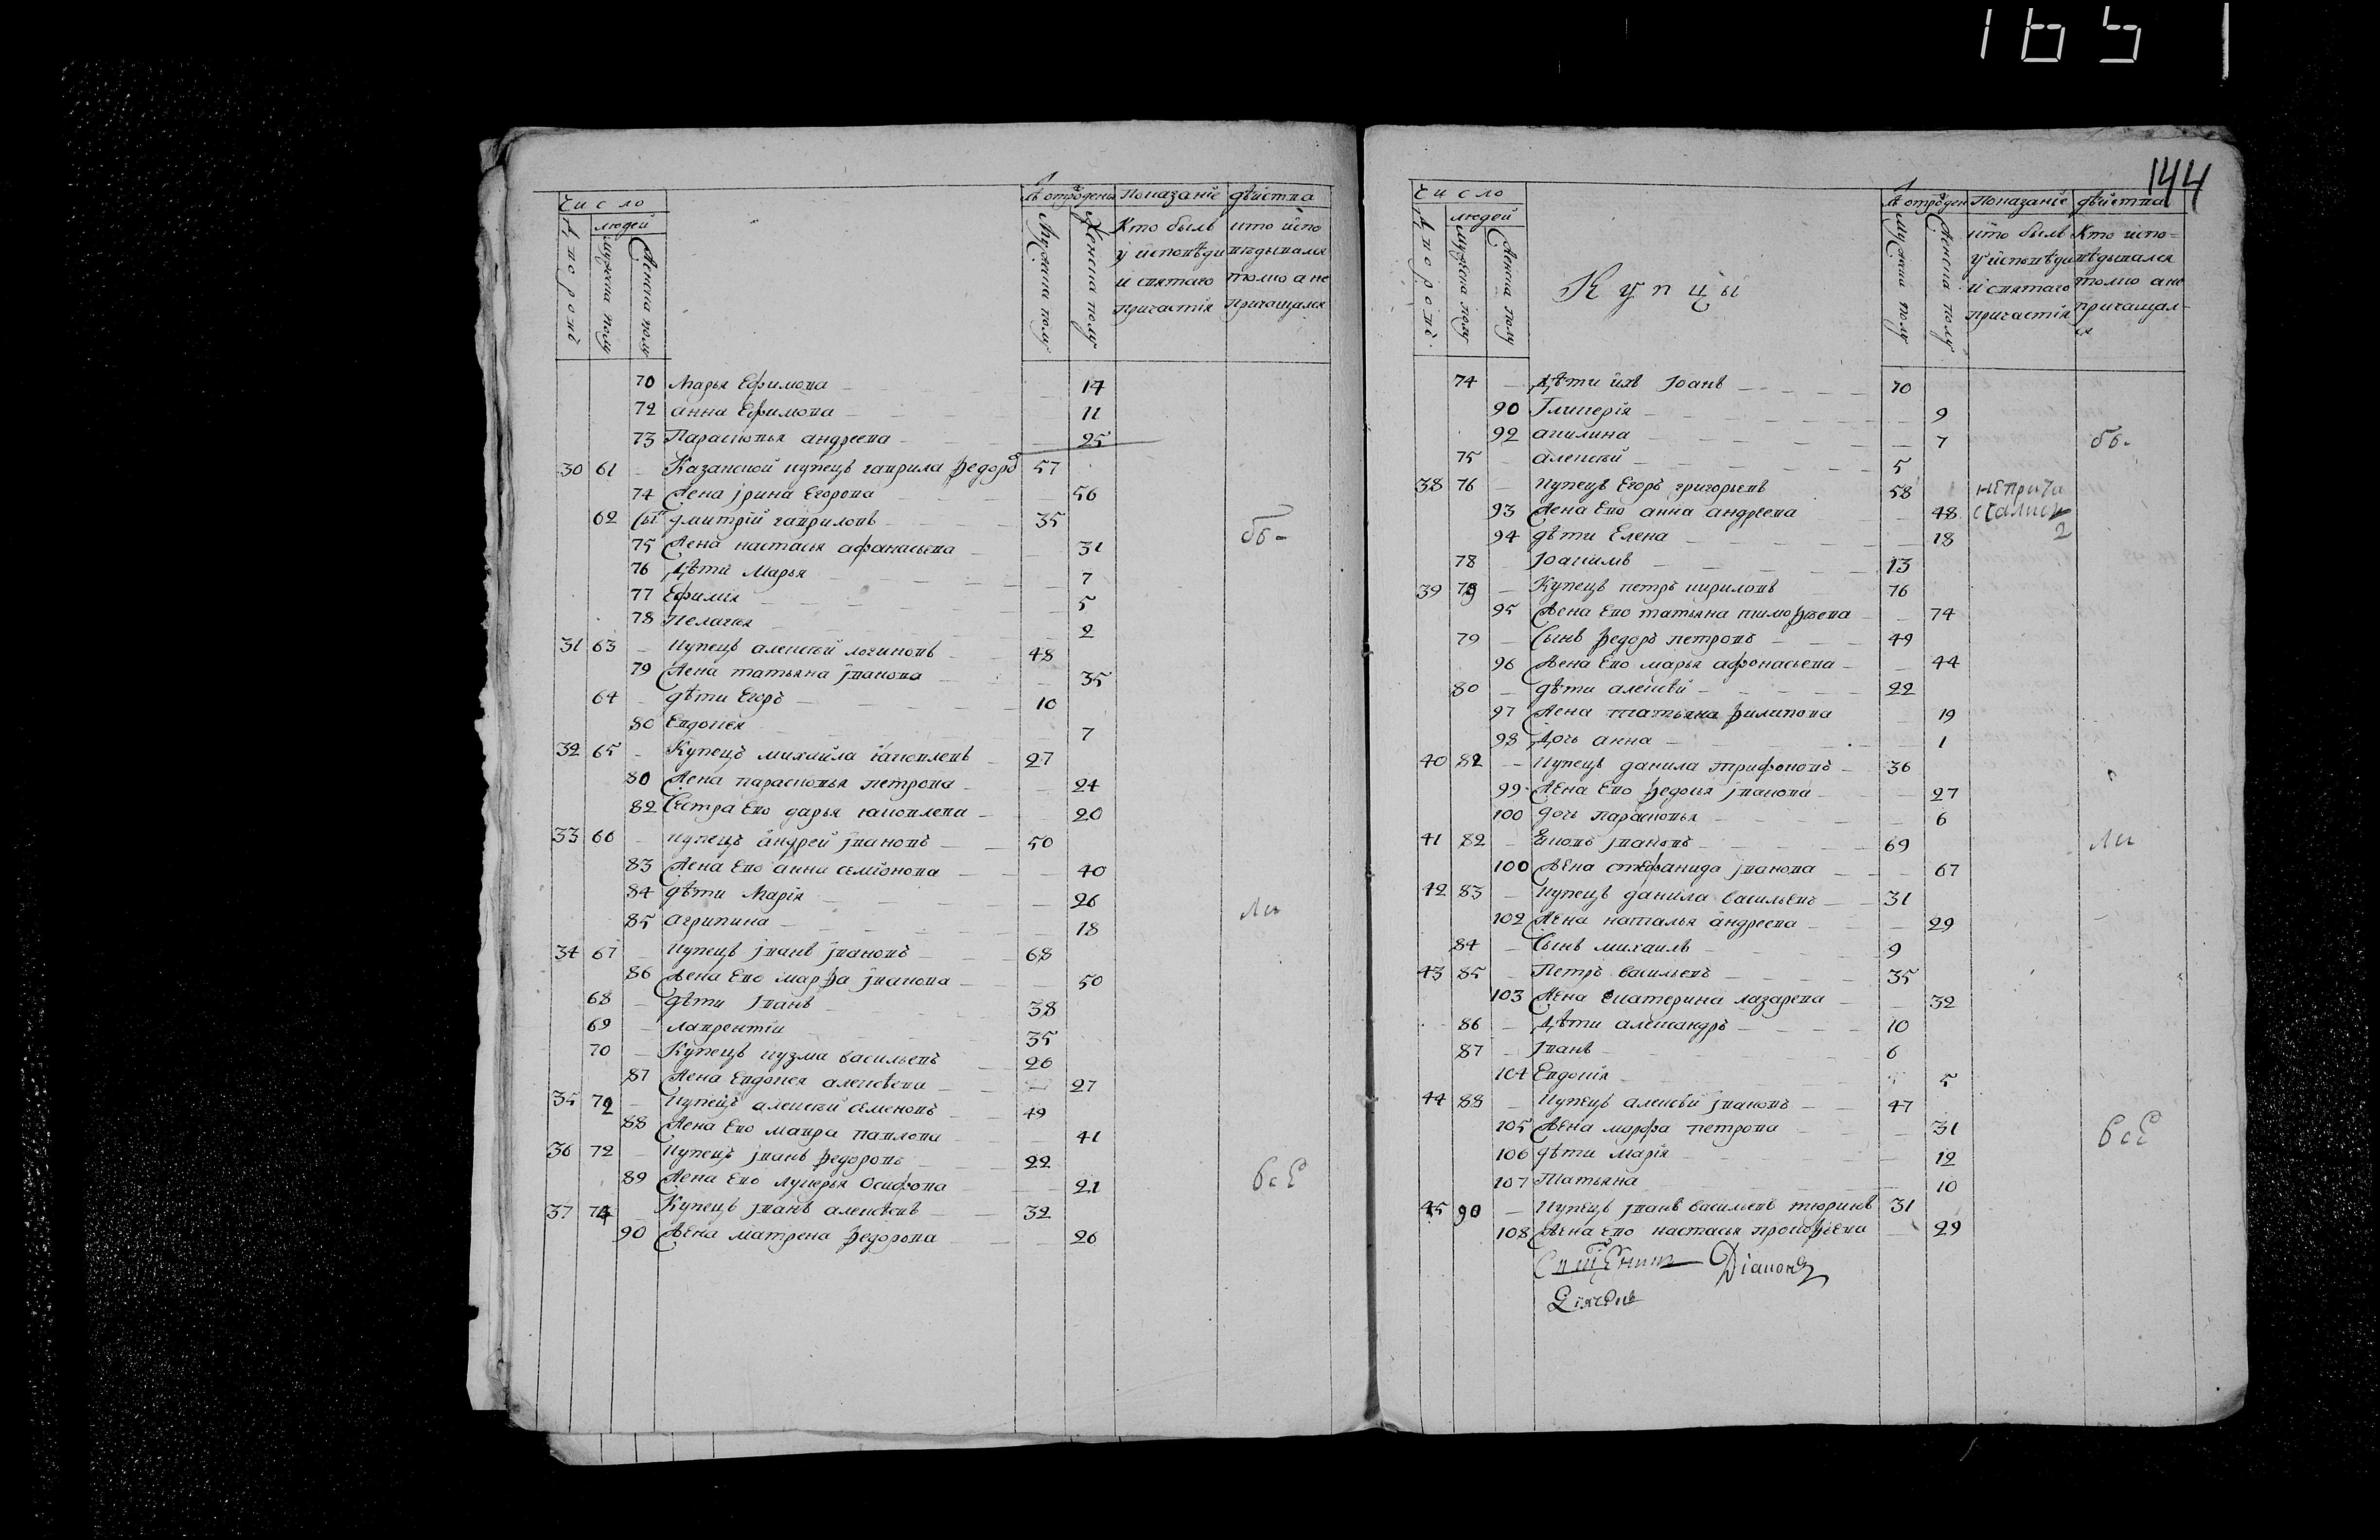 1651
Число
людей
Дворовъ
Мужеска полу
Женска полу
Лѣ отрожден
Мужеска полу
Женска полу
Показанїе дѣиства
Кто былъ
у исповѣди
и святаго
причастїя
кто испо
вѣдывался
толко а не
причащался
70 Марья Ефимова 14
72 анна Ефимова 11
73 Парасковья андреева 25
30 61 Казанской купецъ гаврила Ѳедоро 57
74 Жена ірина Егорова 56
62 сы дмитрїй гавриловъ 35
75 Жена настасья афанасьева 31
76 Дѣти Марья 7
77 Ефимїя 5
78 пелагея 2
31 63 купецъ алексѣй логиновъ 48
79 Жена татьяна іванова 35
64 дѣти Егоръ 10
80 Евдокея 7
32 65 Купецъ михаила іаковлевъ 27
80 Жена парасковья петрова 24
82 Сестра Ево дарья іаковлева 20
33 66 купецъ андрей івановъ 50
83 Жена Ево анна семіонова 40
84 дѣти Марїя 26
85 агрипина 18
34 67 купецъ іванъ івановъ 68
86 Жена Ево марѳа іванова 50
68 дѣти Іванъ 38
69 лаврентїи 35
70 Купецъ кузма васильевъ 26
87 Жена Евдокея алексѣева 27
35 72 купецъ алексѣй семеновъ 49
88 Жена Ево мавра павлова 41
36 72 купецъ іванъ Ѳедоровъ 22
89 Жена Ево лукерья Осифова 21
37 74 Купецъ іванъ алексѣевъ 32
90 Жена матрена Ѳедорова 26
бб
ли
всЕ
144
Число
людей
Дворовъ
Мужеска полу
Женска полу
Купцы
Лѣ отрожден
Мужеска полу
Женска полу
Показанїе дѣиства
кто былъ
у исповѣди
и святаго
причастїя
Кто испо=
вѣдывался
толко а не
причащал-
ся
74 Дѣти ихъ Іоанъ 10
90 Гликерїя 9
92 акилина 7
75 алексѣй 5
38 76 купецъ Егоръ григорьевъ 58
93 Жена Ево анна андреева 48
94 дѣти Елена 18
78 Іоакимъ 13
39 79 Купецъ петръ кириловъ 76
95 Жена Ево татьяна тимоѳѣева 74
79 Сынъ Ѳедоръ петровъ 49
96 Жена Ево марья афонасьева 44
80 дѣти алексѣй 22
97 Жена татьяна Ѳилипова 19
98 Дочь анна 1
40 82 купецъ данила трифоновъ 36
99 Жена Ево Ѳедосия іванова 27
100 дочь парасковья 6
41 82 івановъ 69
100 Жена стефанида іванова 67
42 83 купецъ данила васильевъ 31
102 Жена наталья андреева 29
84 Сынъ михаилъ 9
43 85 Петръ васильевъ 35
103 Жена Екатерина лазарева 32
86 Дѣти александръ 10
87 Іванъ 6
104 Евдокїя 5
44 88 купецъ алексѣй івановъ 47
105 Жена марфа петрова 31
106 дѣти марїя 12
107 Татьяна 10
45 90 купецъ іванъ василевъ тюринъ 31
108 Жена Ево настасья прокоѳьева 29
бб.
неприча
стились
2
ли
всЕ